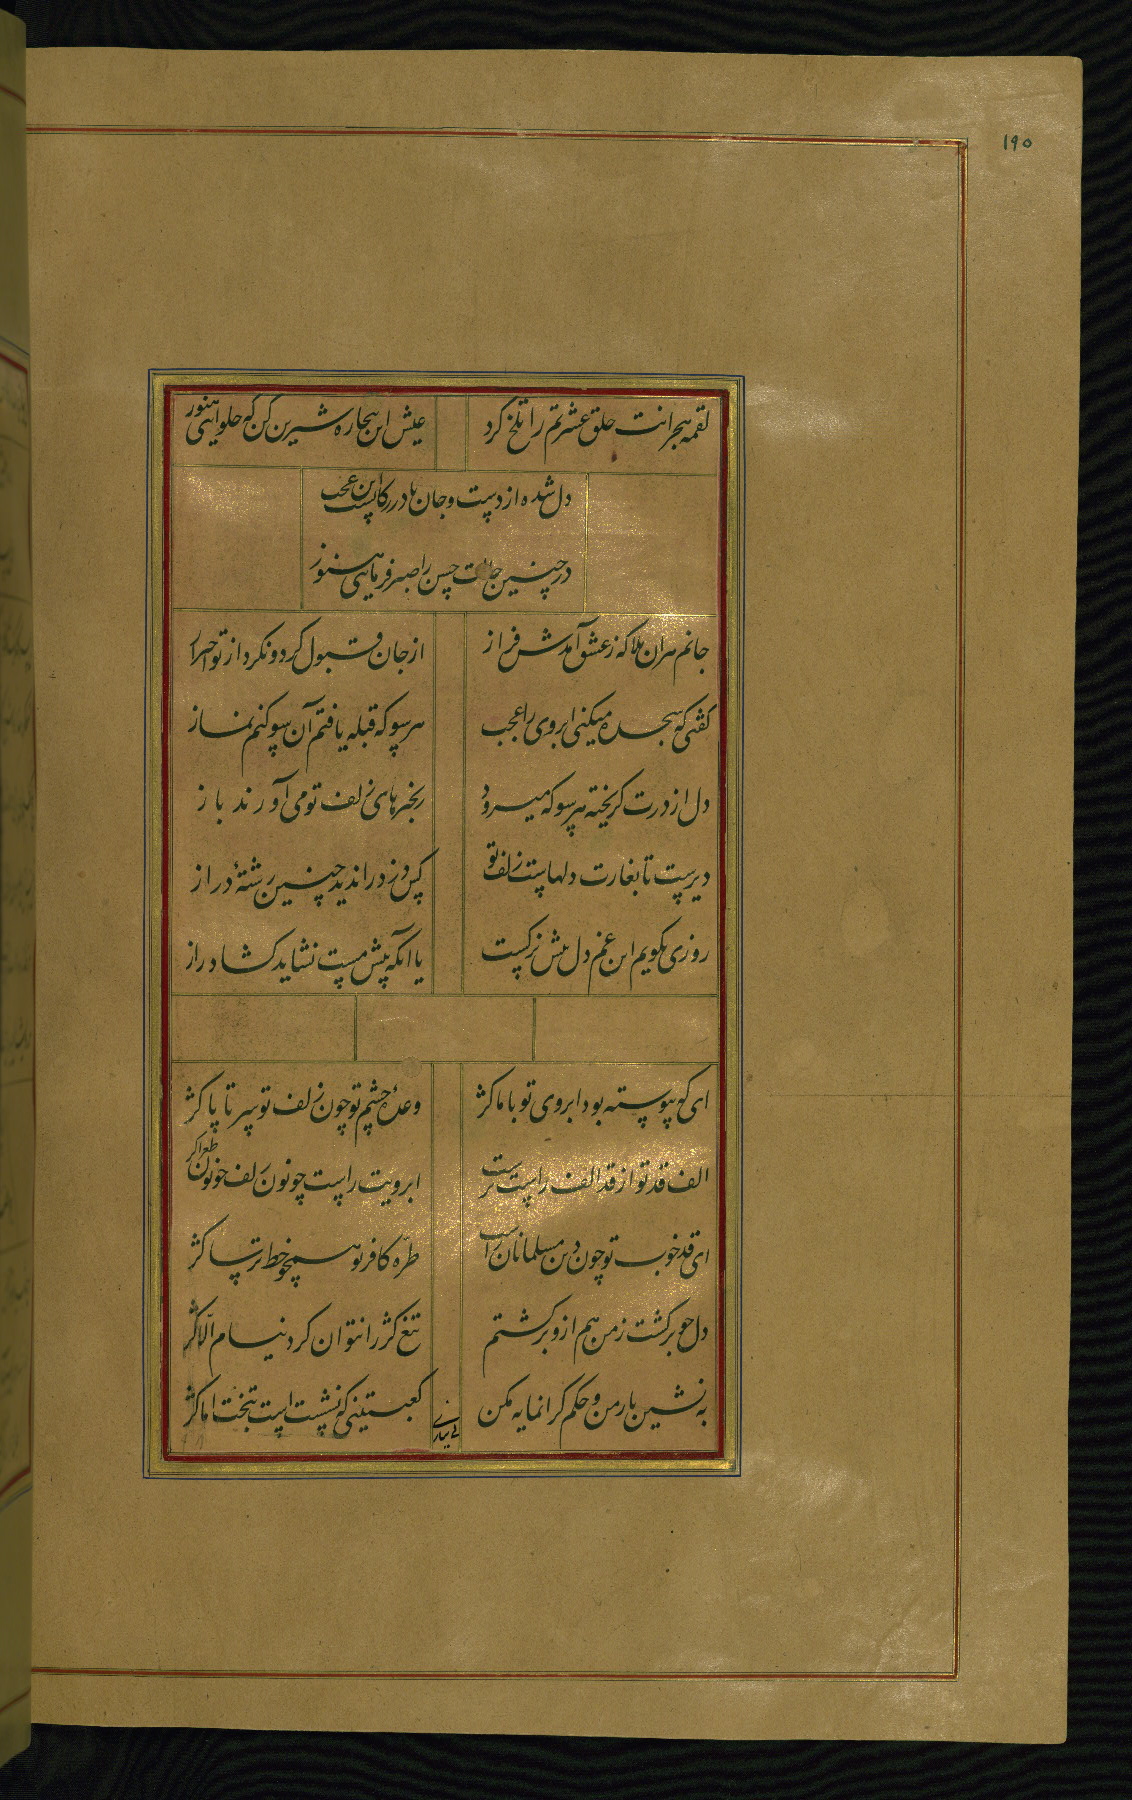 ۱۹۰
لقمه هجرانت حلق عشرتم را تلخ کرد عیش این بیچاره شیرین کن که حلوایی هنوز
دل شده از دست و جان پا در رکابست این عجب
در چنین حالت حسن را صبر فرمایی هنوز
جانم هر ان بلا که ز عشق آمدش فراز از جان قبول کرد و نکرد از تو احتراز
گفتی که سجده میکنی ابروی را عجب هر سو که قبله یافتم آن سو کنم نماز
دل از درت گریخته هر سو که میرود زنجیرهای زلف تو می آورند باز
دیرست تا بغارت دلهاست زلف تو کس دزد را ندید چنین رشتهٔ دراز
روزی بگویم این غم دل پیش نرگست یا آنکه پیش مست نشاید گشاد راز
ای که پیوسته بود ابروی تو با ما کژ وعدهٔ چشم تو چون زلف تو سر تا پا کژ
الف قد تو از قد الف راست ترست ابرویت راست چو نون زلف چو نون
ای قد خوب تو چون دین مسلمانان راست طرّه کافر تو همچو خط ترسا کژ
دل چو برگشت ز من هم ازو برگشتم تیغ کژ را نتوان کرد نیام الّا کژ
به نشین یار من و حکم گرانمایه مکن کعبتینی که نشست است بتخت اما کژ